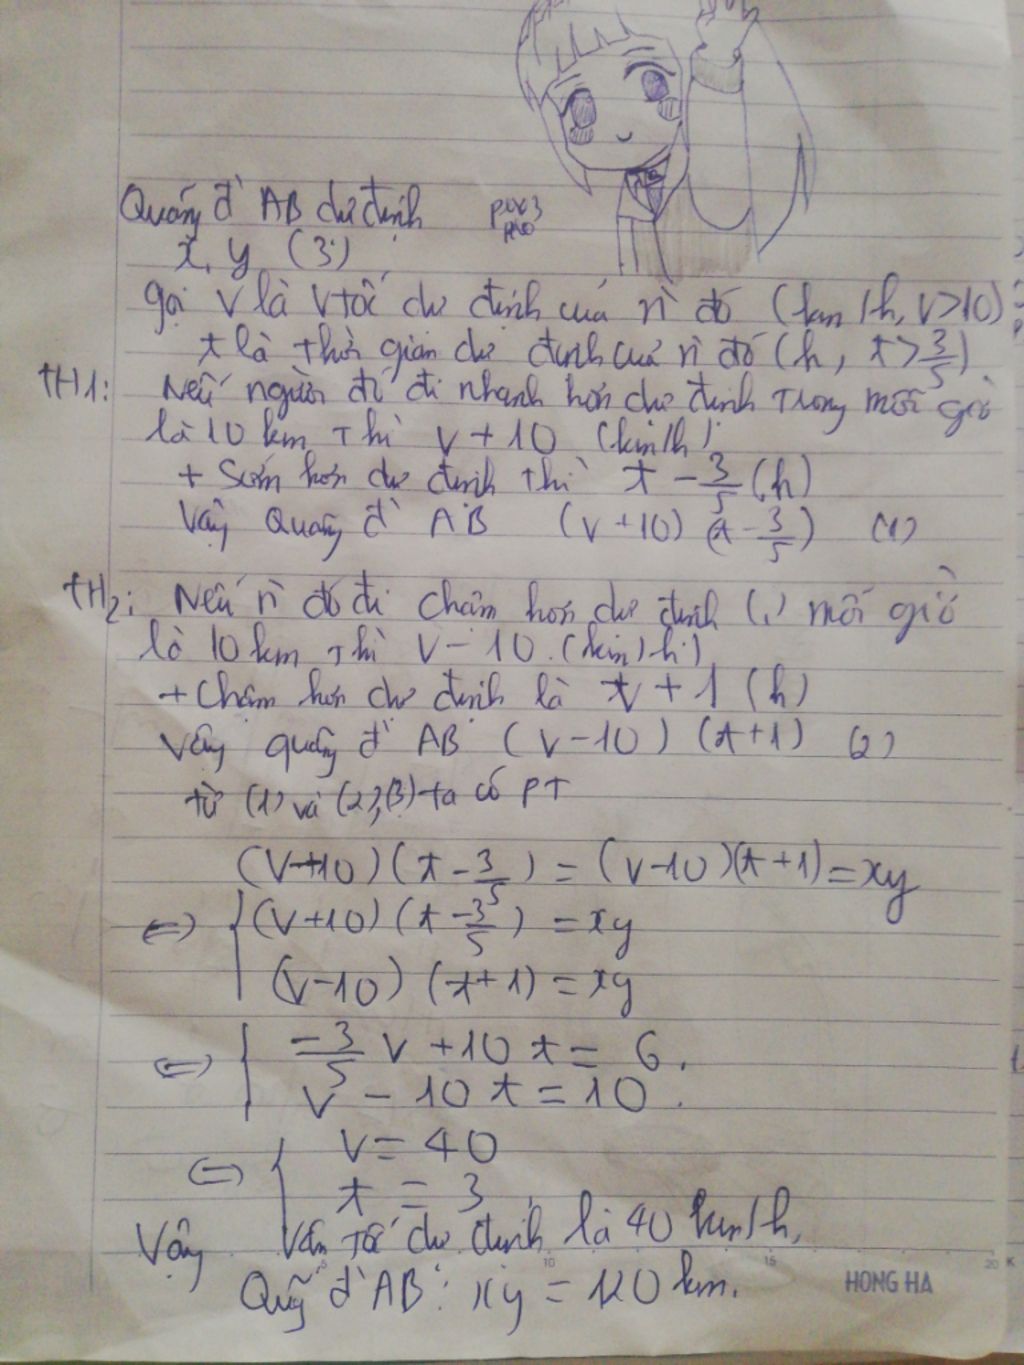 Quãng đ` AB dự định
x, y (3)
gọi v là vtốc dự định của n` đó (km/h, v>10)
t là thời gian dự định của n` đó (h, t>3/5)
TH1: Nếu người đó đi nhanh hơn dự định trong mỗi giờ
là 10 km thì v + 10 (km/h)
+ Sớm hơn dự định thì t - 3/5 (h)
Vậy Quãng đ` AB (v + 10) (t - 3/5) (1)
TH2: Nếu n` đó đi chậm hơn dự định (.) mỗi giờ
là 10 km thì v - 10 (km/h)
+ Chậm hơn dự định là t + 1 (h)
Vậy quãng đ` AB (v - 10) (t + 1) (2)
từ (1) và (2),(3) ta có PT
(v+10)(t - 3/5) = (v-10)(t+1) = xy
<=> { (v+10)(t - 3/5) = xy
(v-10) (t+1) = xy
<=> { -3/5 v + 10 t = 6.
v - 10 t = 10.
<=> { v = 40
t = 3
Vậy Vận tốc dự định là 40 km/h,
Quãng đ` AB: xy = 120 km.
HONG HA